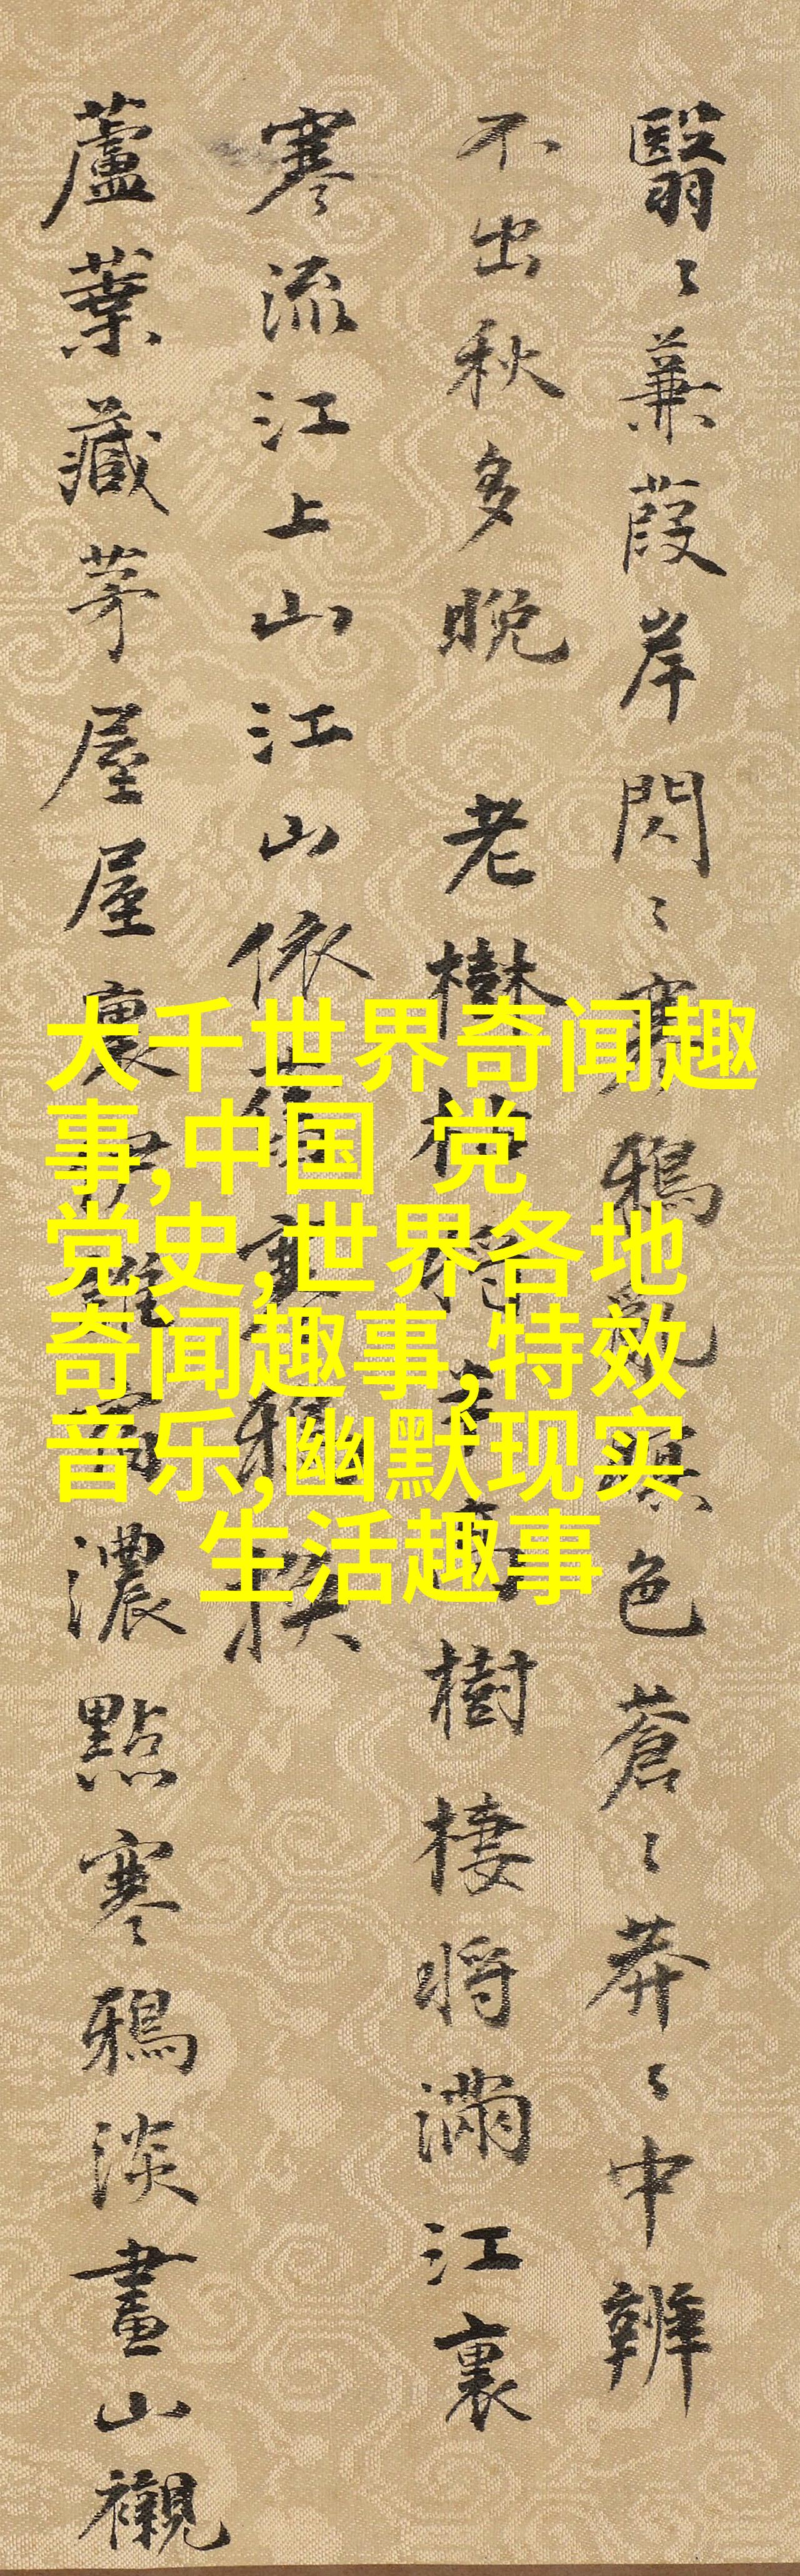 翳〻蒹葭岸閃〻寒鴉亂暝色蒼〻莽〻中辨
不出秋多晚 老樹將半高樹棲將滿江裏
寒流江上山江山依舊鴉换
蘆葉藏茅屋屋裏伊誰濃點寒鴉淡畫山襯
大千世界奇闻趣
事,中国 党
党史,世界各地
奇闻趣事,特效
音乐,幽默现实
生活趣事